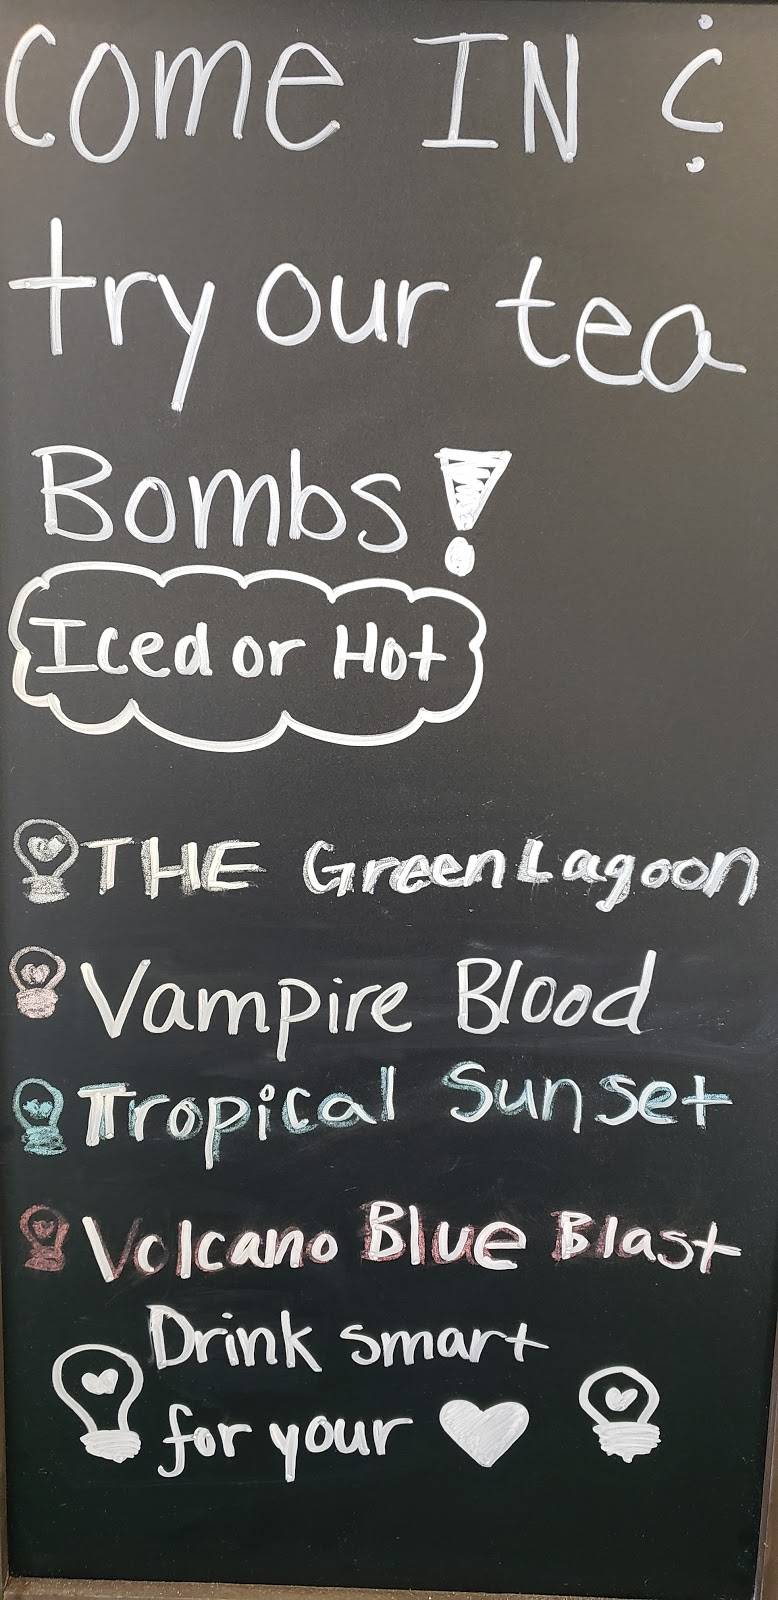 Come IN &
try our tea
Bombs!
Iced or Hot
THE Green Lagoon
Vampire Blood
Tropical Sunset
Volcano Blue Blast
Drink smart
for your